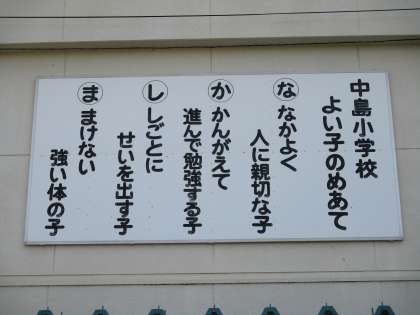 中島小学校
よい子のめあて
な なかよく
人に親切な子
か かんがえて
進んで勉強する子
し しごとに
せいを出す子
ま まけない
強い体の子